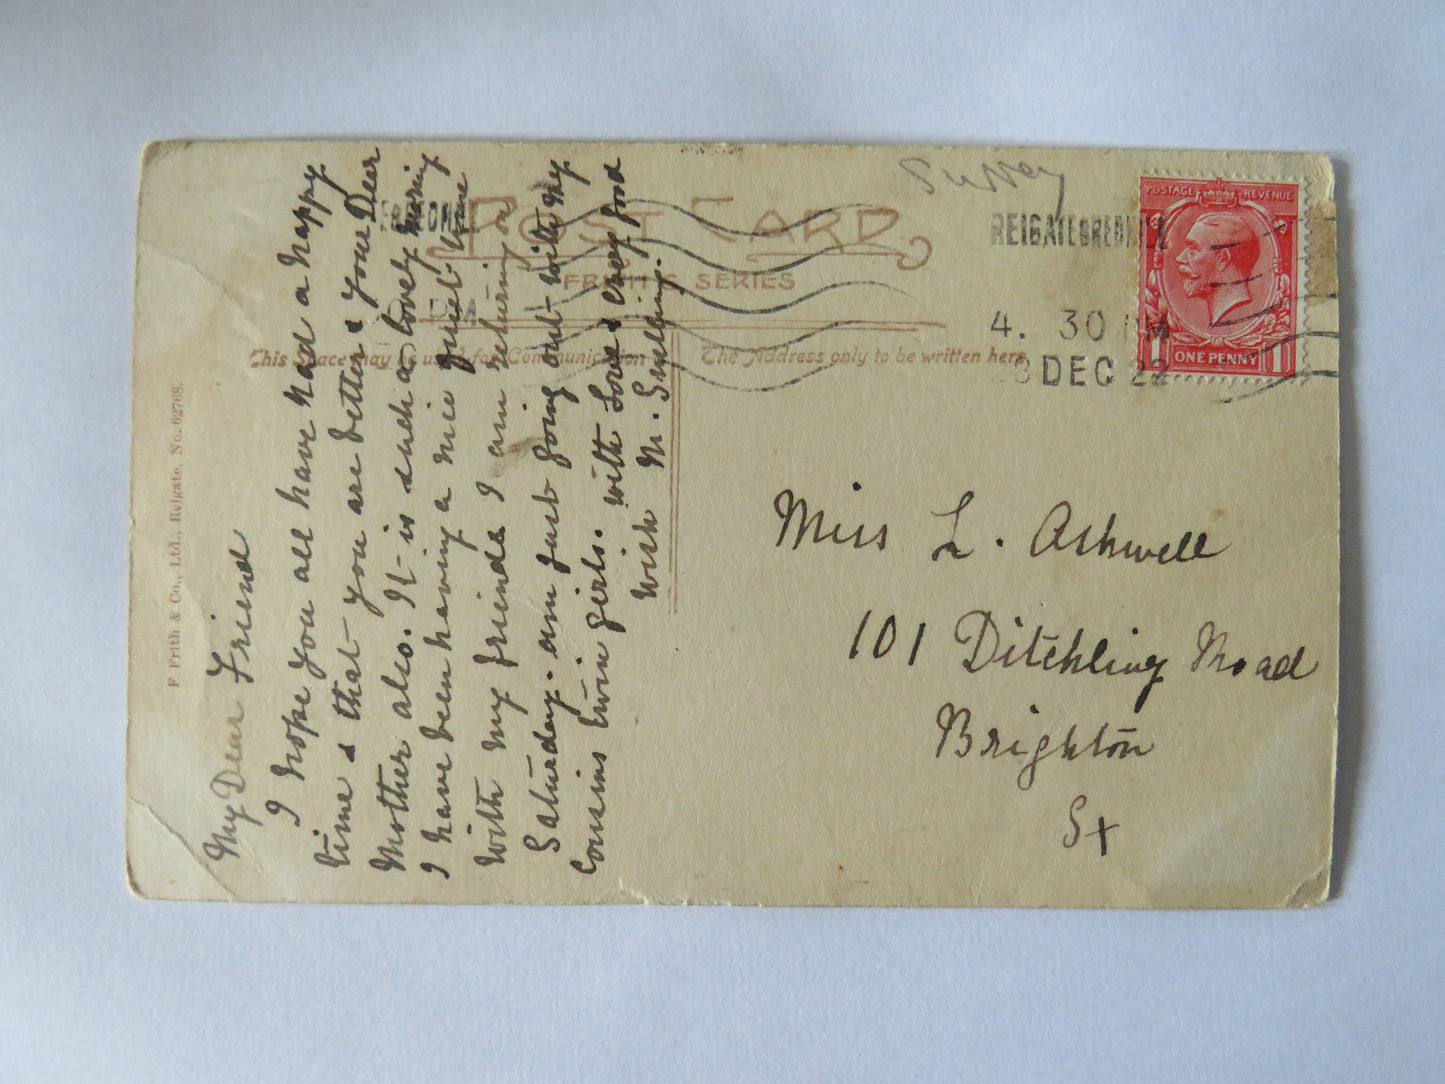 Surrey
POST CARD
FRITH'S SERIES
REIGATE & REDHILL
4. 30 PM
8 DEC 22
POSTAGE REVENUE
ONE PENNY
1
This Space may be used for Communication
The Address only to be written here
F Frith & Co., Ltd., Reigate. No. 62768.
My Dear Friend
I hope you all have had a happy
time & that you are better & your Dear
Mother also. It is such a lovely morning
I have been having a nice quiet time
with my friends I am returning
Saturday. am just going out with my
Cousins twin girls. with Love & every good
wish M.
Miss L. Ashwell
101 Ditchling Road
Brighton
Sx